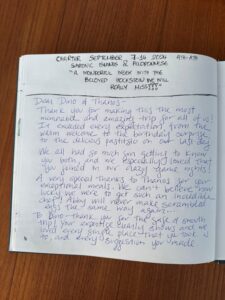 CHARTER SEPTEMBER 7-14 2024 ATH-ATH
SARONIC ISLANDS & PELOPONNESE
"A WONDERFUL WEEK WITH THE
BELOVED "ROCKSTAR" WE WILL
REALLY MISS!!!"
Dear Dino & Thanos-
Thank you for making this the most
memorable and amazing trip for all of us!
It exceeded every expectation, from the
warm welcome to the birthday surprise
to the delicious pastitsio on our last day
We all had so much fun getting to know
you both, and we especially loved that
you joined in our crazy game nights!
A very special thanks to Thanos for your
exceptional meals. We can't believe how
lucky we were to get such an incredible
chef! Abby will never make scrambled
eggs the same way again-
To Dino-thank you for the safe & smooth
trip! Your expertise clearly shows and we
loved every single place that you took us
to and every suggestion you made